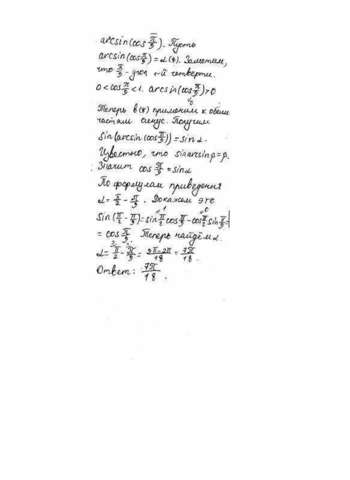 arcsin(cos π/9). Пусть
arcsin(cos π/9) = α (*). Заметим,
что π/9 - угол I-й четверти.
0 < cos π/9 < 1. arcsin(cos π/9) > 0
Теперь в (*) применим к обеим
частям синус. Получим
sin(arcsin(cos π/9)) = sin α.
Известно, что sin arcsin β = β.
Значит cos π/9 = sin α
По формулам приведения
α = π/2 - π/9. Докажем это
sin(π/2 - π/9) = sin π/2 cos π/9 - cos π/2 sin π/9 =
= cos π/9 Теперь найдём α.
α = π/2 - π/9 = 9π-2π/18 = 7π/18.
Ответ: 7π/18.